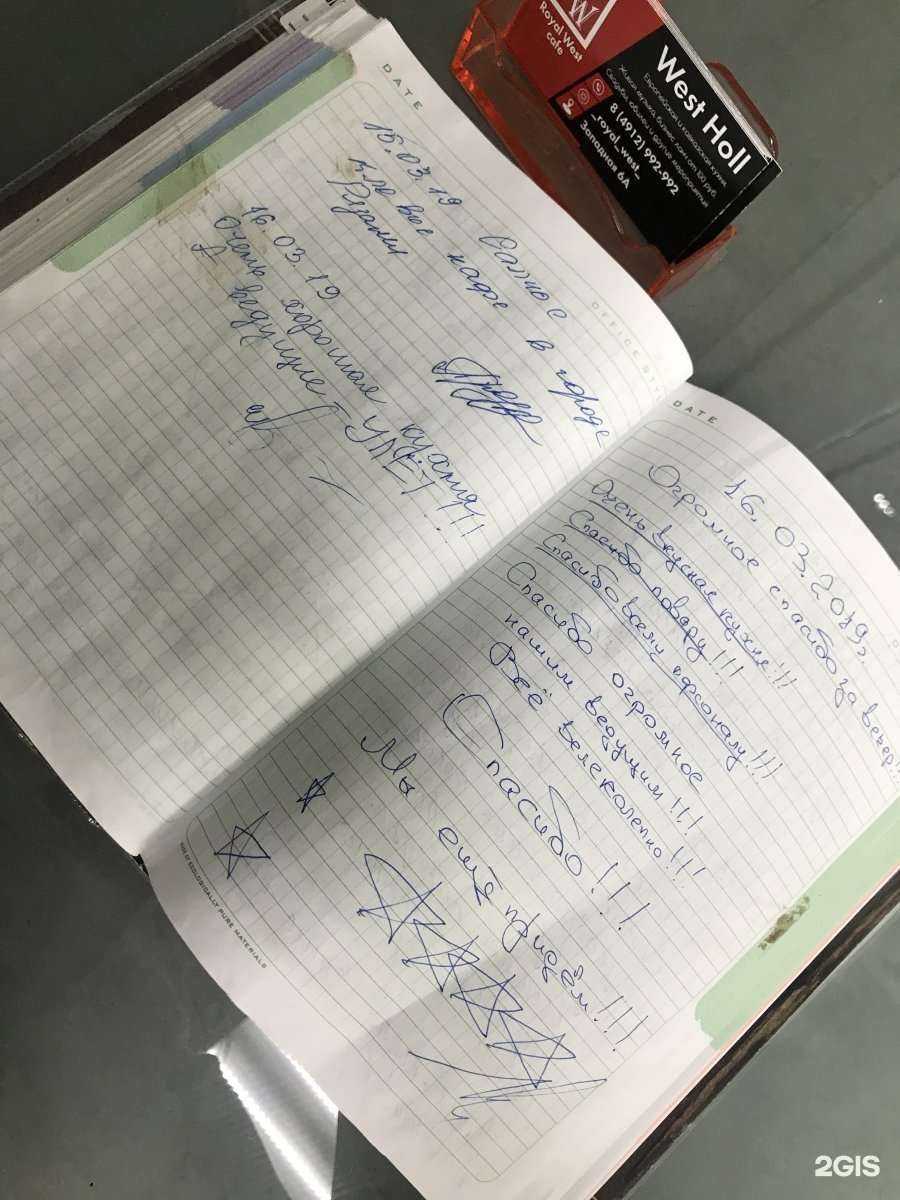 DATE
15.03.19
Самое
злое кафе в городе
Рязани
16.03.19
Очень хорошая кухня!!!
А ведущие - УЛЁТ
OFFICE
DATE
16.03.2019г.
Огромное спасибо за вечер!!
Очень вкусная кухня!!!
Спасибо повару!!!
Спасибо всему персоналу!!!
Спасибо огромное
нашим ведущим!!!
Всё великолепно!!!
Спасибо!!!
Мы ещё придём!!!
MADE OF ECOLOGICALLY PURE MATERIALS
W
Royal West
cafe
West Holl
Европейская и кавказская кухня,
Живая музыка, бизнес ланч от 100 руб.
Свадьбы, юбилеи и другие мероприятия
8 (4912) 992-992
_royal_west_
Западная 6А
2GIS